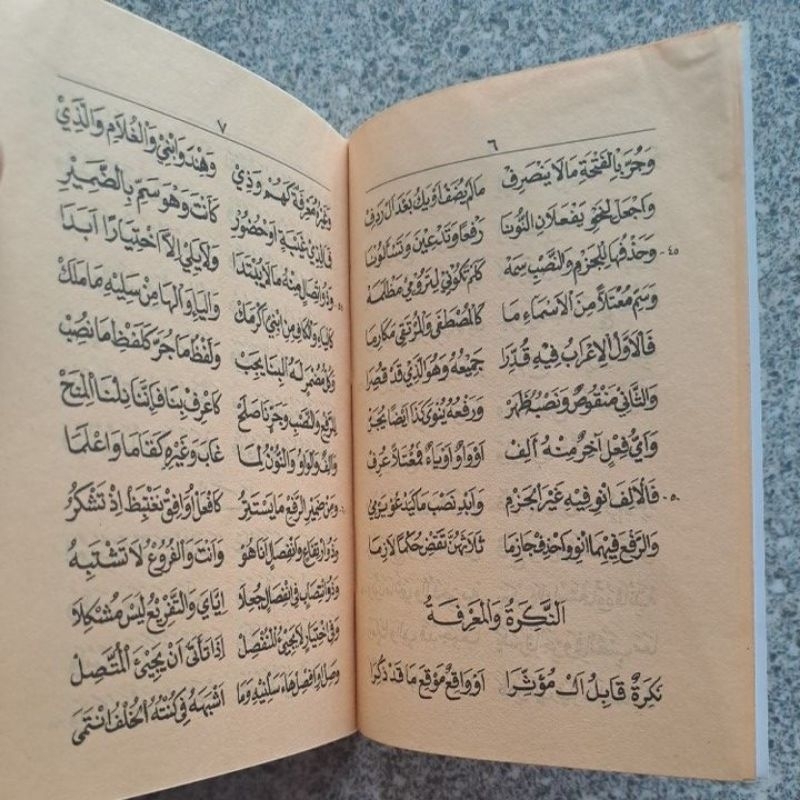 ٦
وَجُرَّ بِالْفَتْحَةِ مَا لَا يَنْصَرِفْ مَا لَمْ يُضَفْ أَوْ يَكُ بَعْدَ اَلْ رَدِفْ
وَاجْعَلْ لِنَحْوِ يَفْعَلَانِ النُّونَا رَفْعًا وَتَدْعِينَ وَتَسْأَلُونَا
٤٥ وَحَذْفُهَا لِلْجَزْمِ وَالنَّصْبِ سِمَهْ كَلَمْ تَكُونِي لِتَرُومِي مَظْلَمَهْ
وَسَمِّ مُعْتَلاًّ مِنَ الْاَسْمَاءِ مَا كَالْمُصْطَفَى وَالْمُرْتَقِي مَكَارِمَا
فَالْاَوَّلُ الْاِعْرَابُ فِيهِ قُدِّرَا جَمِيعُهُ وَهُوَ الَّذِي قَدْ قُصِرَا
وَالثَّانِي مَنْقُوصٌ وَنَصْبُهُ ظَهَرْ وَرَفْعُهُ يُنْوَى كَذَا اَيْضًا يُجَرّْ
وَاَيُّ فِعْلٍ آخِرٌ مِنْهُ اَلِفْ اَوْ وَاوٌ اَوْ يَاءٌ فَمُعْتَلاًّ عُرِفْ
٥٠ فَالْاَلِفَ انْوِ فِيهِ غَيْرَ الْجَزْمِ وَاَبْدِ نَصْبَ مَا كَيَدْعُو يَرْمِي
وَالرَّفْعَ فِيهِمَا انْوِ وَاحْذِفْ جَازِمَا ثَلَاثَهُنَّ تَقْضِ حُكْمًا لَازِمَا
النَّكِرَةُ وَالْمَعْرِفَةُ
نَكِرَةٌ قَابِلُ اَلْ مُؤَثِّرَا اَوْ وَاقِعٌ مَوْقِعَ مَا قَدْ ذُكِرَا
٧
وَغَيْرُهُ مَعْرِفَةٌ كَهُمْ وَذِي وَهِنْدَ وَابْنِي وَالْغُلَامِ وَالَّذِيْ
فَمَا لِذِي غَيْبَةٍ اَوْ حُضُورِ كَأَنْتَ وَهْوَ سَمِّ بِالضَّمِيْرِ
٥٥ وَذُو اتِّصَالٍ مِنْهُ مَا لَا يُبْتَدَا وَلَا يَلِيْ اِلاَّ اخْتِيَارًا اَبَدَا
كَالْيَاءِ وَالْكَافِ مِنِ ابْنِيْ اَكْرَمَكْ وَالْيَاءِ وَالْهَا مِنْ سَلِيْهِ مَا مَلَكْ
وَكُلُّ مُضْمَرٍ لَهُ الْبِنَا يَجِبْ وَلَفْظُ مَا جُرَّ كَلَفْظِ مَا نُصِبْ
لِلرَّفْعِ وَالنَّصْبِ وَجَرٍّ نَا صَلَحْ كَاعْرِفْ بِنَا فَاِنَّنَا نِلْنَا الْمِنَحْ
وَاَلِفٌ وَالْوَاوُ وَالنُّوْنُ لِمَا غَابَ وَغَيْرِهِ كَقَامَا وَاعْلَمَا
٦٠ وَمِنْ ضَمِيْرِ الرَّفْعِ مَا يَسْتَتِرُ كَافْعَلْ اُوَافِقْ نَغْتَبِطْ اِذْ تَشْكُرُ
وَذُو ارْتِفَاعٍ وَانْفِصَالٍ اَنَا هُوْ وَاَنْتَ وَالْفُرُوْعُ لَا تَشْتَبِهُ
وَذُو انْتِصَابٍ فِي انْفِصَالٍ جُعِلَا اِيَّايَ وَالتَّفْرِيْعُ لَيْسَ مُشْكِلَا
وَفِي اخْتِيَارٍ لَا يَجِيْئُ الْمُنْفَصِلْ اِذَا تَأَتَّى اَنْ يَجِيْئَ الْمُتَّصِلْ
وَصِلْ اَوِ افْصِلْ هَاءَ سَلْنِيْهِ وَمَا اَشْبَهَهُ فِيْ كُنْتُهُ الْخُلْفُ انْتَمَى